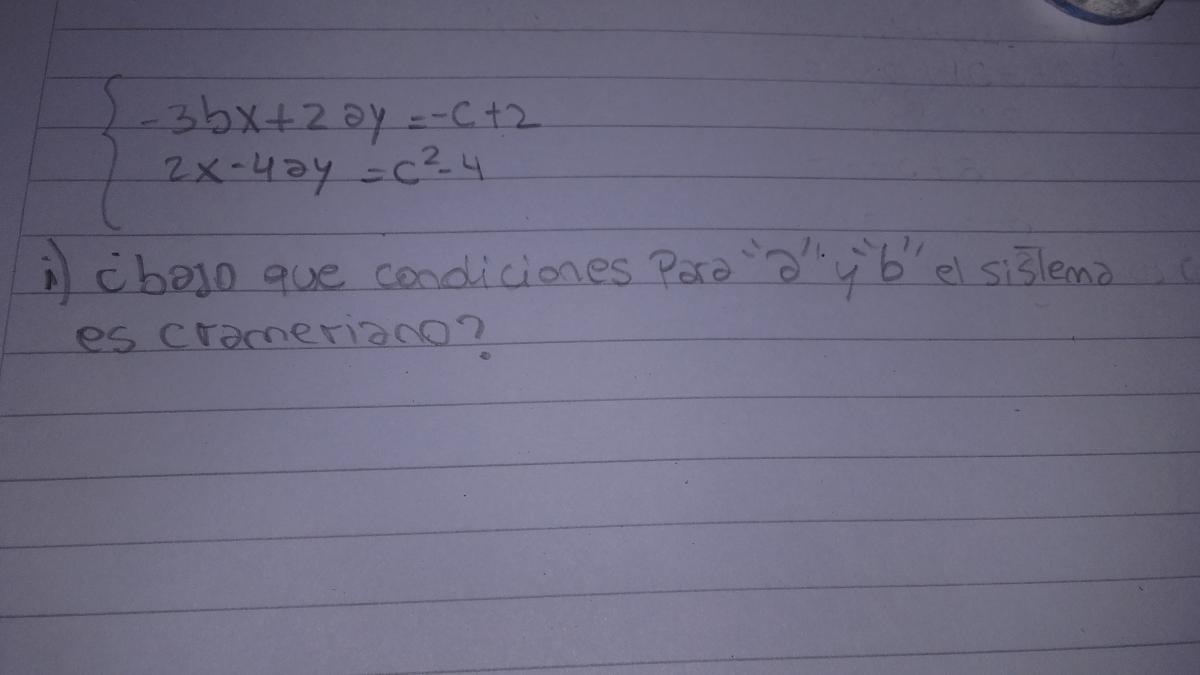 -3bx+2ay=-c+2
2x-4ay=c²-4
i) ¿bajo que condiciones Para "a" y "b" el sistema
es crameriano?